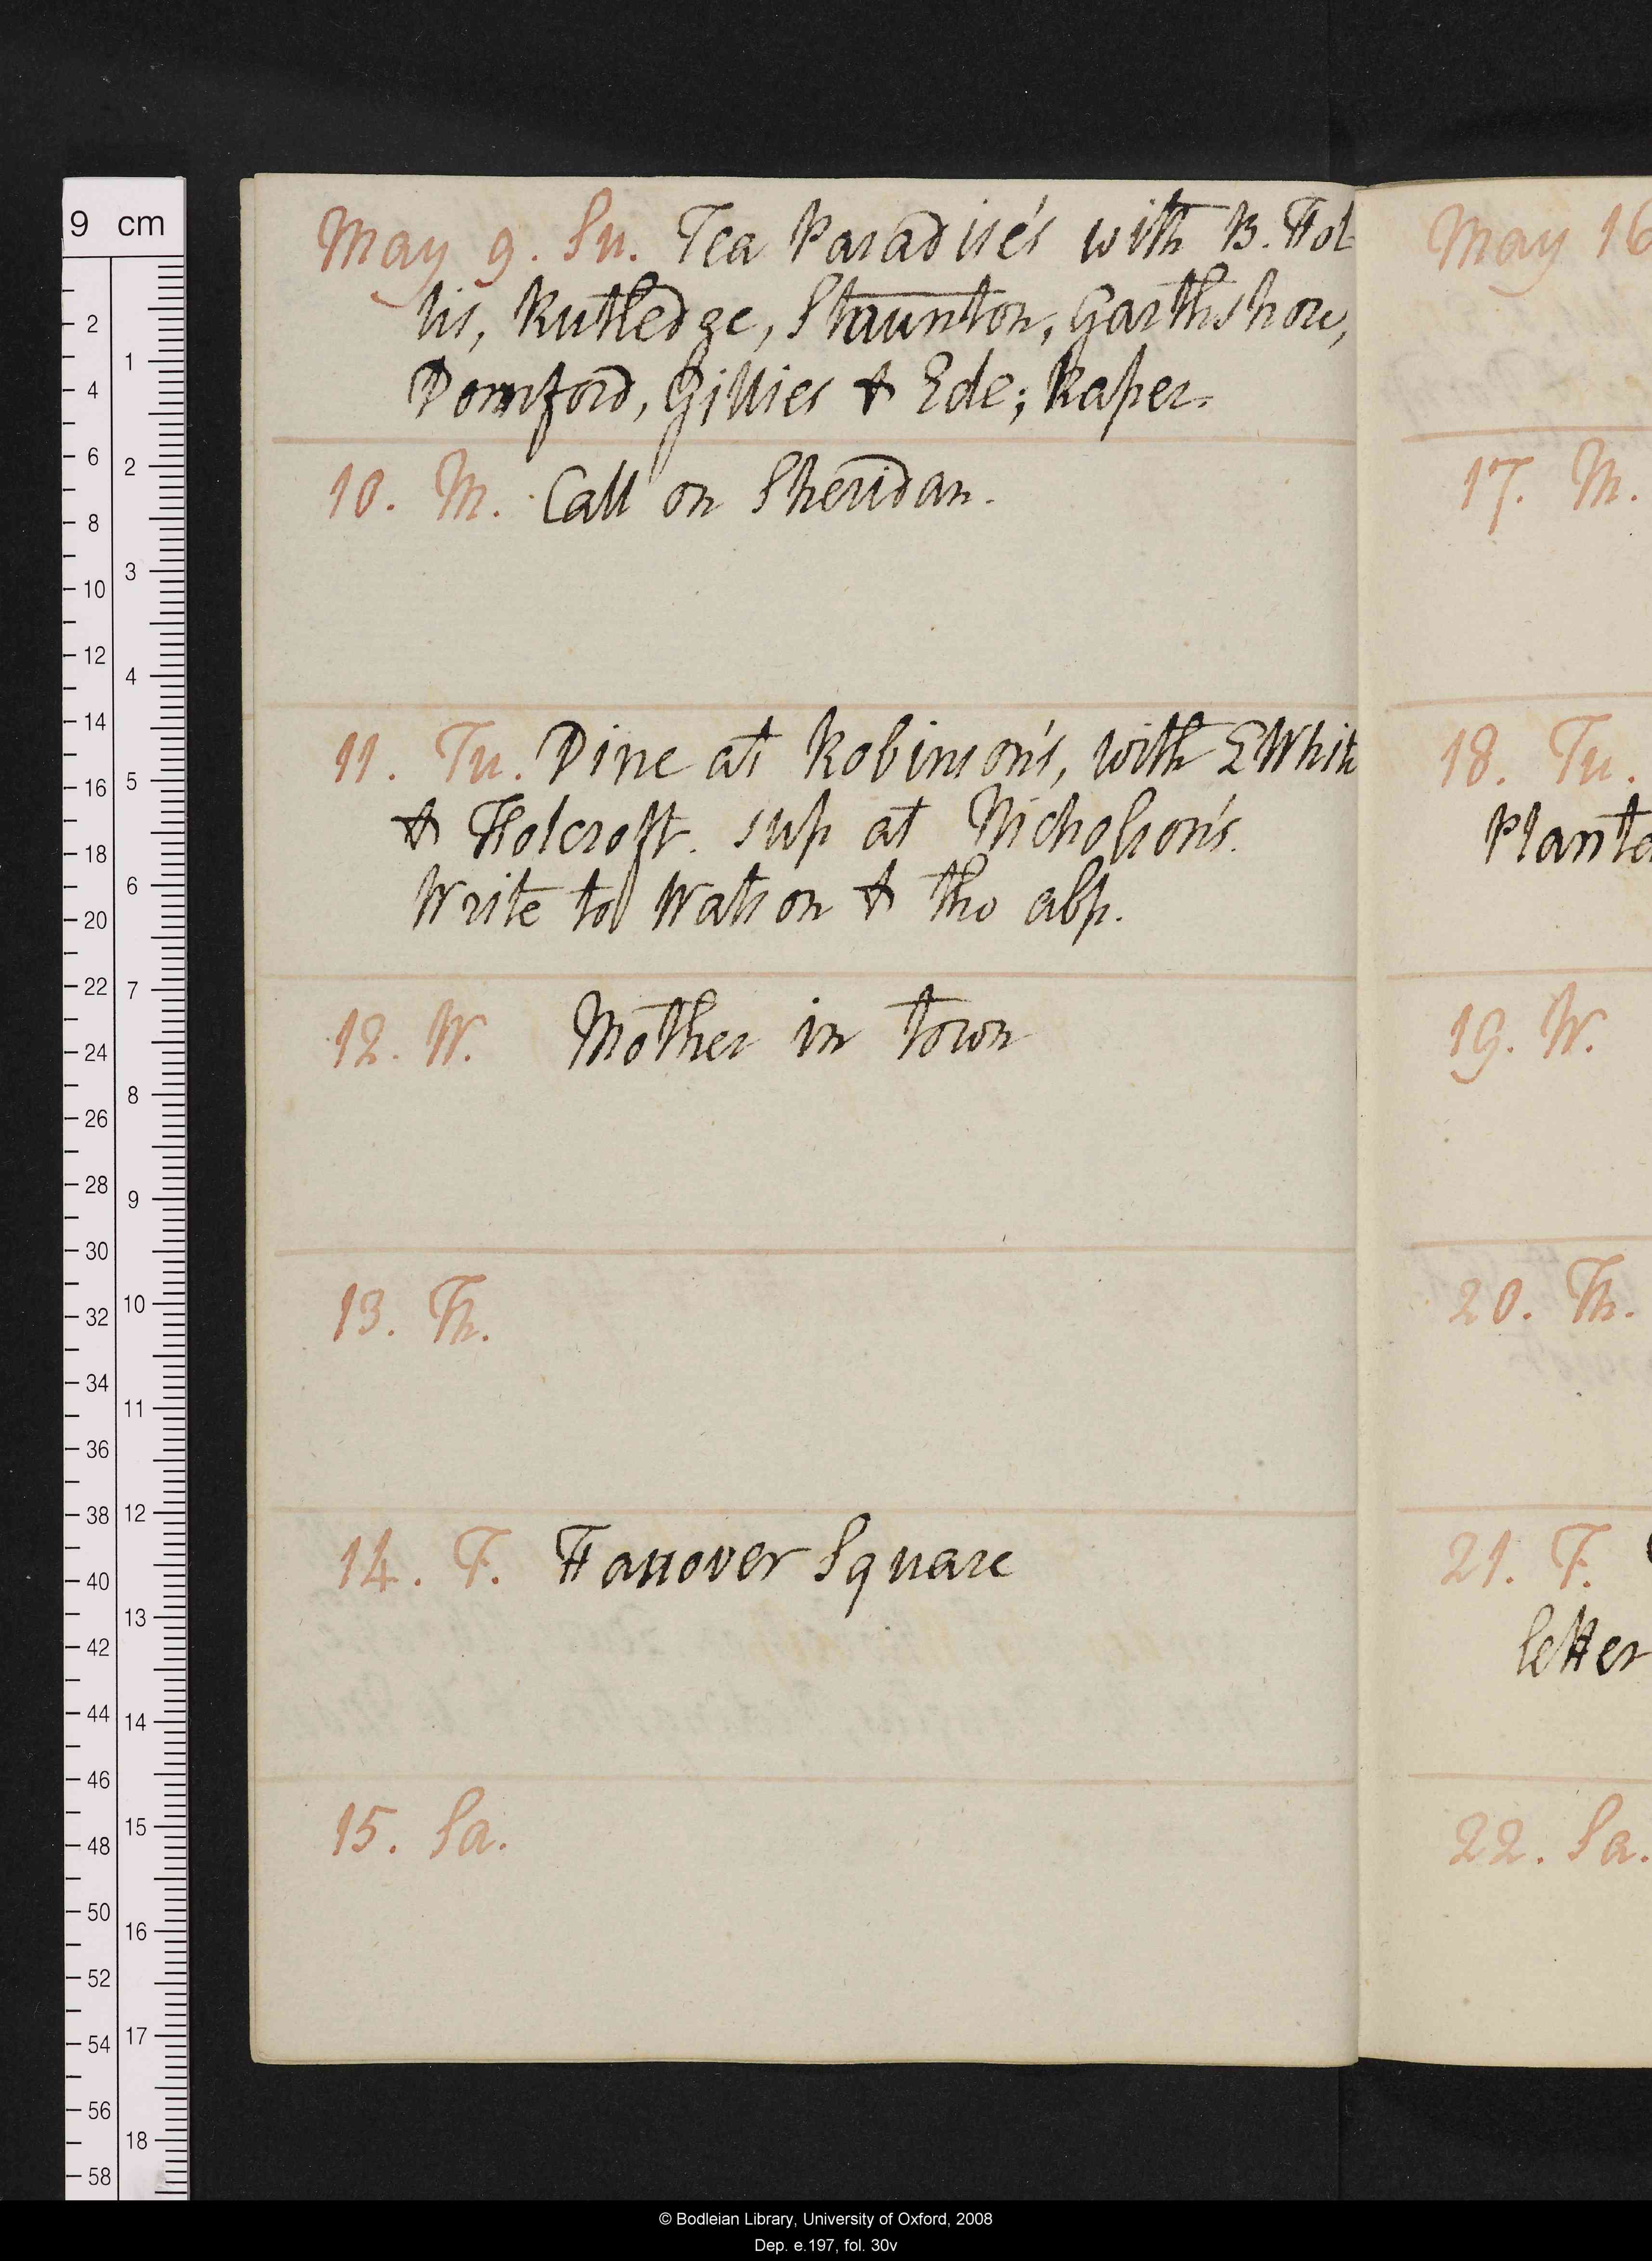 May 9. Su. Tea Paradise's with B. Hol-
lis, Rutledge, Staunton, Garthshore,
Dornford, Gillies & Ede; Raper.
10. M. Call on Sheridan.
11. Tu. Dine at Robinson's, with E White
& Holcroft. sup at Nicholson's.
Write to Watson & the abp.
12. W. Mother in town
13. Th.
14. F. Hanover Square
15. Sa.
May 16
17. M.
18. Tu.
Planta
19. W.
20. Th.
21. F.
letter
22. Sa.
9 cm
2
4
6
8
10
12
14
16
18
20
22
24
26
28
30
32
34
36
38
40
42
44
46
48
50
52
54
56
58
1
2
3
4
5
6
7
8
9
10
11
12
13
14
15
16
17
18
© Bodleian Library, University of Oxford, 2008
Dep. e.197, fol. 30v